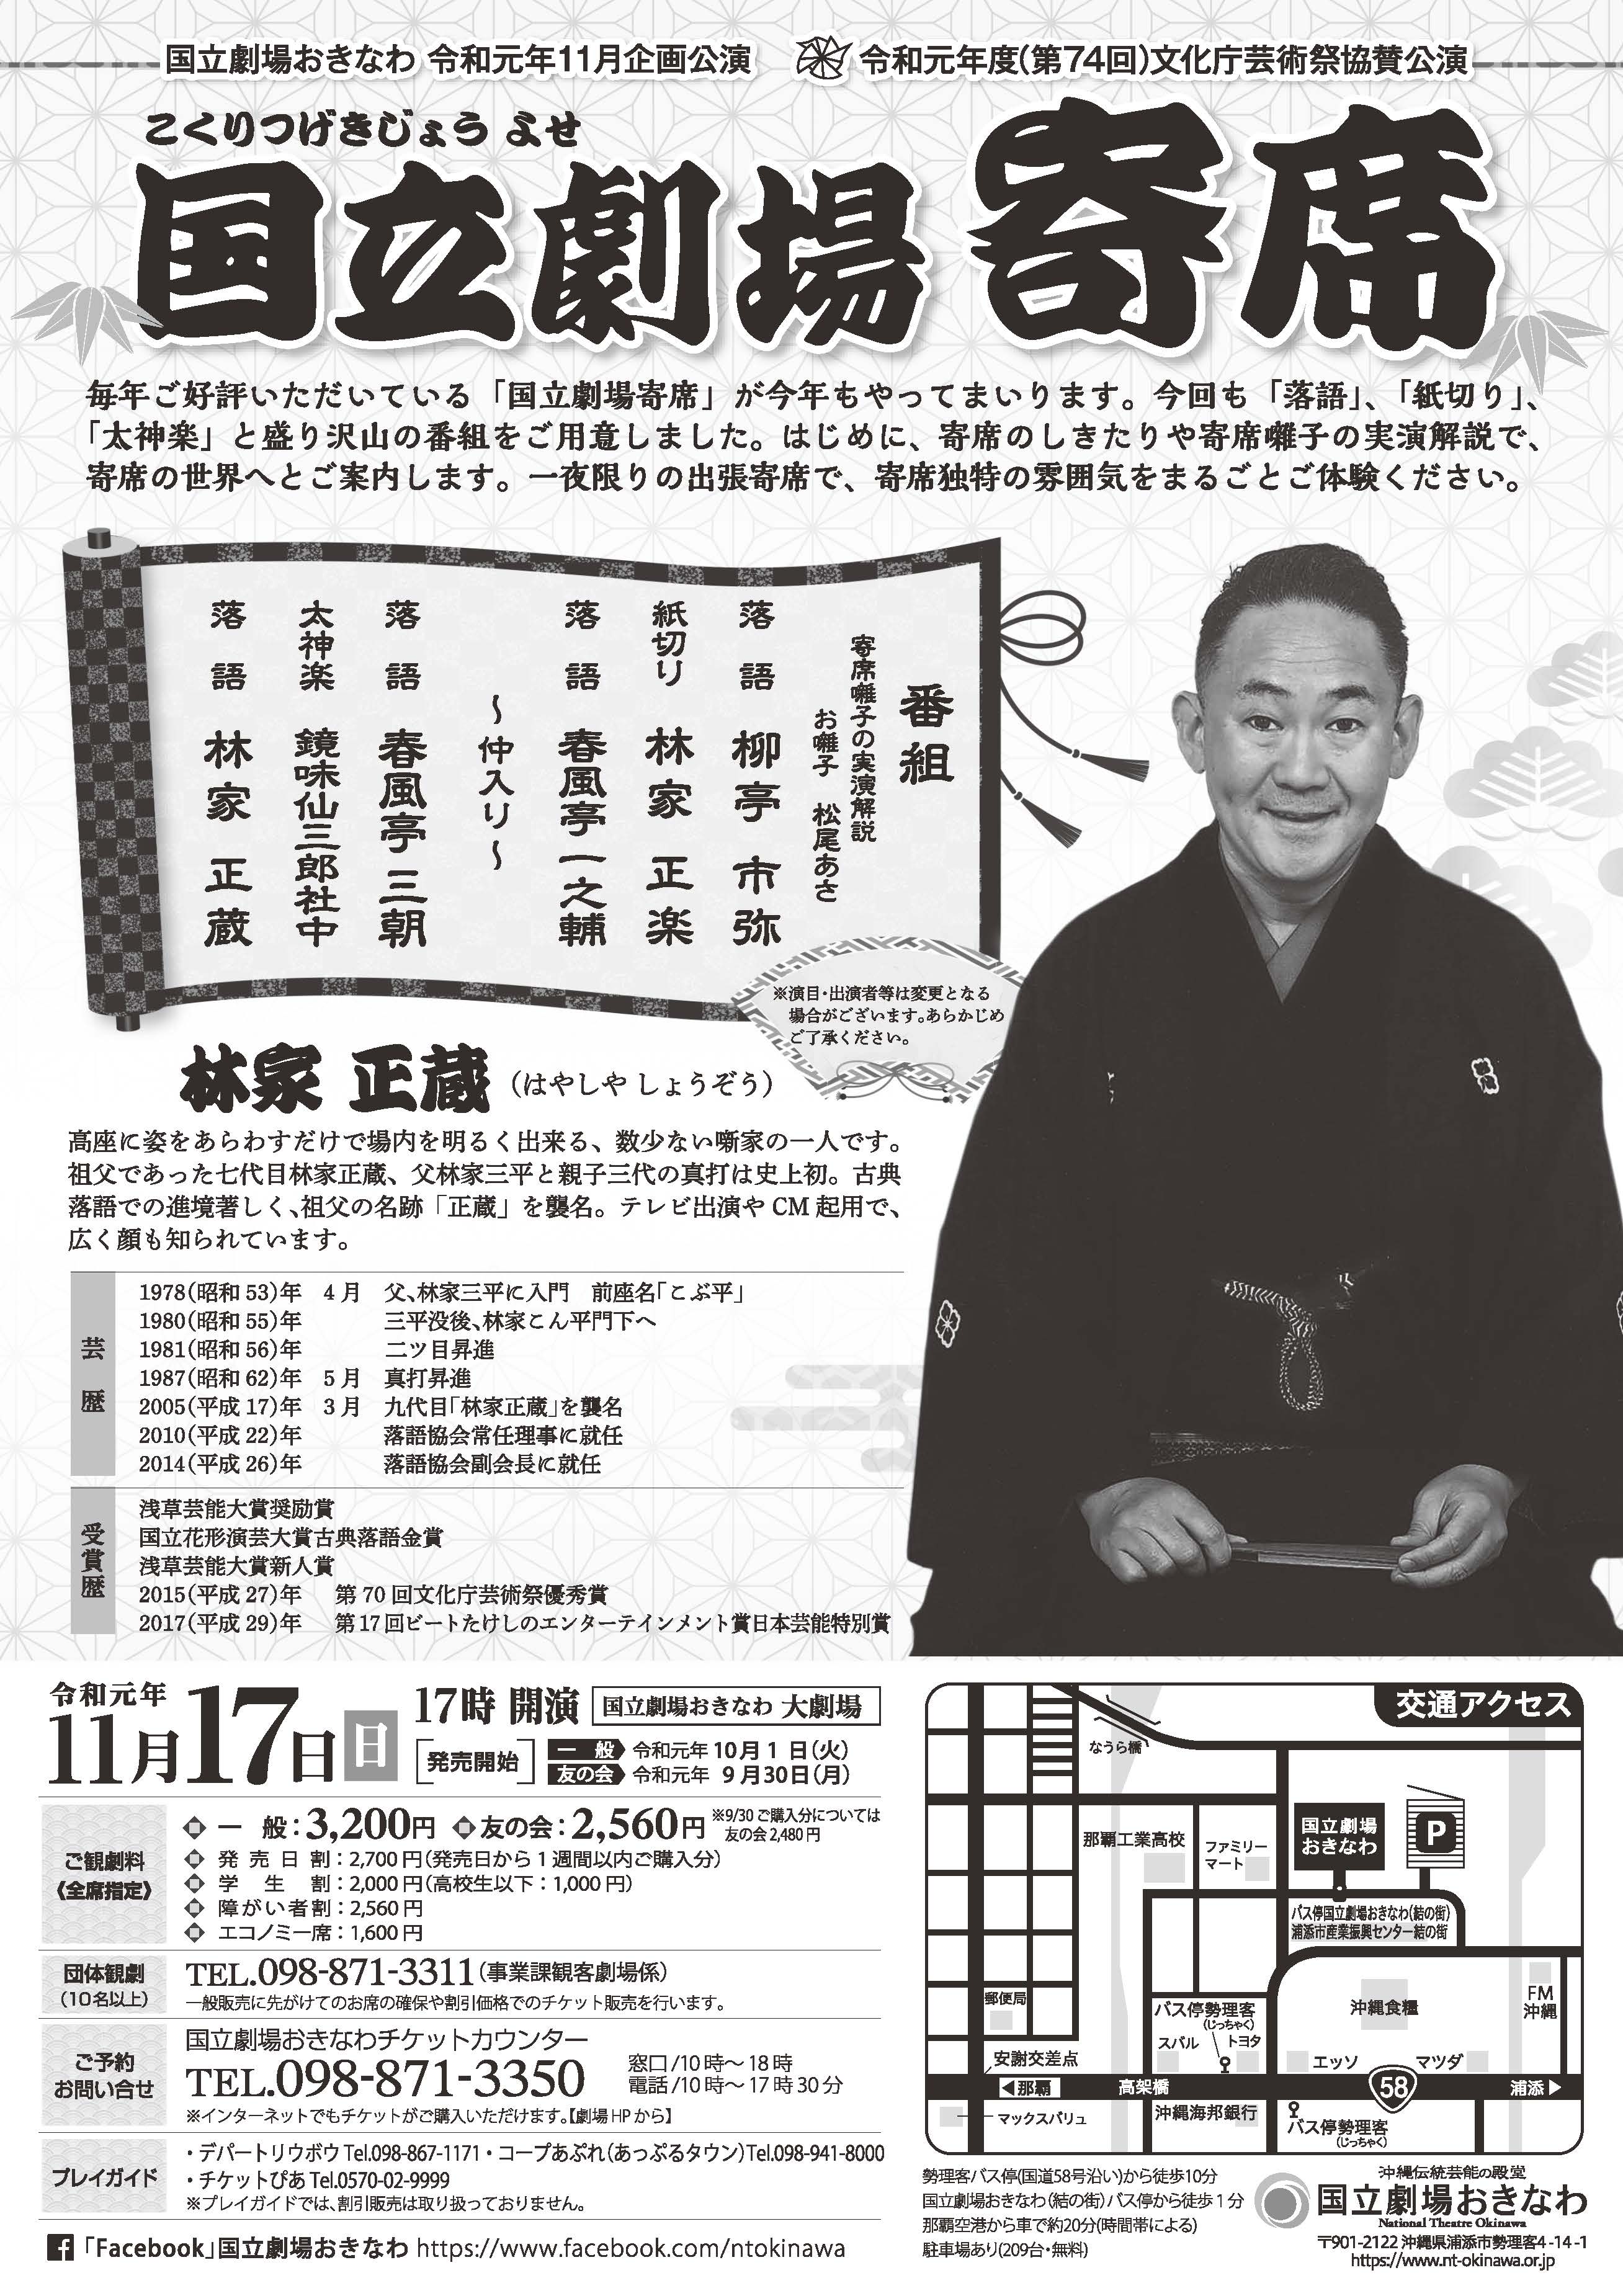 国立劇場おきなわ 令和元年11月企画公演
令和元年度(第74回)文化庁芸術祭協賛公演
こくりつげきじょう よせ
国立劇場 寄席
毎年ご好評いただいている「国立劇場寄席」が今年もやってまいります。今回も「落語」、「紙切り」、
「太神楽」と盛り沢山の番組をご用意しました。はじめに、寄席のしきたりや寄席囃子の実演解説で、
寄席の世界へとご案内します。一夜限りの出張寄席で、寄席独特の雰囲気をまるごとご体験ください。
番組
寄席囃子の実演解説
お囃子 松尾あさ
落語 柳亭 市弥
紙切り 林家 正楽
落語 春風亭一之輔
~仲入り~
落語 春風亭 三朝
太神楽 鏡味仙三郎社中
落語 林家 正蔵
※演目・出演者等は変更となる
場合がございます。あらかじめ
ご了承ください。
林家 正蔵 (はやしや しょうぞう)
高座に姿をあらわすだけで場内を明るく出来る、数少ない噺家の一人です。
祖父であった七代目林家正蔵、父林家三平と親子三代の真打は史上初。古典
落語での進境著しく、祖父の名跡「正蔵」を襲名。テレビ出演や CM 起用で、
広く顔も知られています。
芸歴
1978(昭和 53)年 4 月 父、林家三平に入門 前座名「こぶ平」
1980(昭和 55)年 三平没後、林家こん平門下へ
1981(昭和 56)年 二ツ目昇進
1987(昭和 62)年 5 月 真打昇進
2005(平成 17)年 3 月 九代目「林家正蔵」を襲名
2010(平成 22)年 落語協会常任理事に就任
2014(平成 26)年 落語協会副会長に就任
受賞歴
浅草芸能大賞奨励賞
国立花形演芸大賞古典落語金賞
浅草芸能大賞新人賞
2015(平成 27)年 第 70 回文化庁芸術祭優秀賞
2017(平成 29)年 第 17 回ビートたけしのエンターテインメント賞日本芸能特別賞
令和元年
11月17日 日
17時 開演 国立劇場おきなわ 大劇場
発売開始
一 般 令和元年 10月 1 日(火)
友の会 令和元年 9 月30日(月)
ご観劇料
《全席指定》
◆ 一 般:3,200円 ◆ 友の会:2,560円 ※9/30 ご購入分については
友の会 2,480 円
◆ 発 売 日 割:2,700 円(発売日から 1 週間以内ご購入分)
◆ 学 生 割:2,000 円(高校生以下:1,000 円)
◆ 障がい者割:2,560 円
◆ エコノミー席:1,600 円
団体観劇
(10名以上)
TEL.098-871-3311(事業課観客劇場係)
一般販売に先がけてのお席の確保や割引価格でのチケット販売を行います。
ご予約
お問い合せ
国立劇場おきなわチケットカウンター
TEL.098-871-3350
窓口/10 時~ 18 時
電話/10 時~ 17 時 30 分
※インターネットでもチケットがご購入いただけます。【劇場 HP から】
プレイガイド
・デパートリウボウ Tel.098-867-1171・コープあぷれ(あっぷるタウン)Tel.098-941-8000
・チケットぴあ Tel.0570-02-9999
※プレイガイドでは、割引販売は取り扱っておりません。
「Facebook」国立劇場おきなわ https://www.facebook.com/ntokinawa
交通アクセス
なうら橋
那覇工業高校
ファミリー
マート
国立劇場
おきなわ
P
バス停国立劇場おきなわ(結の街)
浦添市産業振興センター結の街
郵便局
バス停勢理客
(じっちゃく)
スバル
トヨタ
沖縄食糧
FM
沖縄
安謝交差点
エッソ
マツダ
◀那覇
高架橋
58
浦添▶
マックスバリュ
沖縄海邦銀行
バス停勢理客
(じっちゃく)
勢理客バス停(国道58号沿い)から徒歩10分
国立劇場おきなわ(結の街)バス停から徒歩 1 分
那覇空港から車で約20分(時間帯による)
駐車場あり(209台・無料)
沖縄伝統芸能の殿堂
国立劇場おきなわ
National Theatre Okinawa
〒901-2122 沖縄県浦添市勢理客4-14-1
https://www.nt-okinawa.or.jp